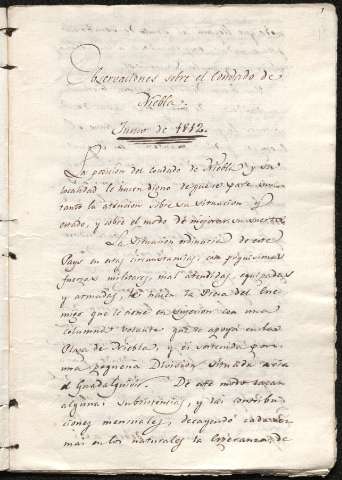 1
Observaciones sobre el Condado de
Niebla.
Junio de 1812.
La posicion del condado de Niebla y su
localidad le hacen digno de que se pare un
tanto la atencion sobre su situacion y
estado, y sobre el modo de mejorar su suerte.
La situacion ordinaria de este
Pays en estas circunstancias, con poquisimas
fuerzas militares, mal atendidas, equipadas
y armadas, es la del Ene-
migo que le tiene en sujecion con una
columna volante que se apoya en la
Plaza de Niebla, y es sostenida por
una pequeña Division situada
al Guadalquivir. De este modo sacan
algunas subsistencias, y las contribu-
ciones mensuales, decayendo cada vez
mas en los naturales la esperanza de